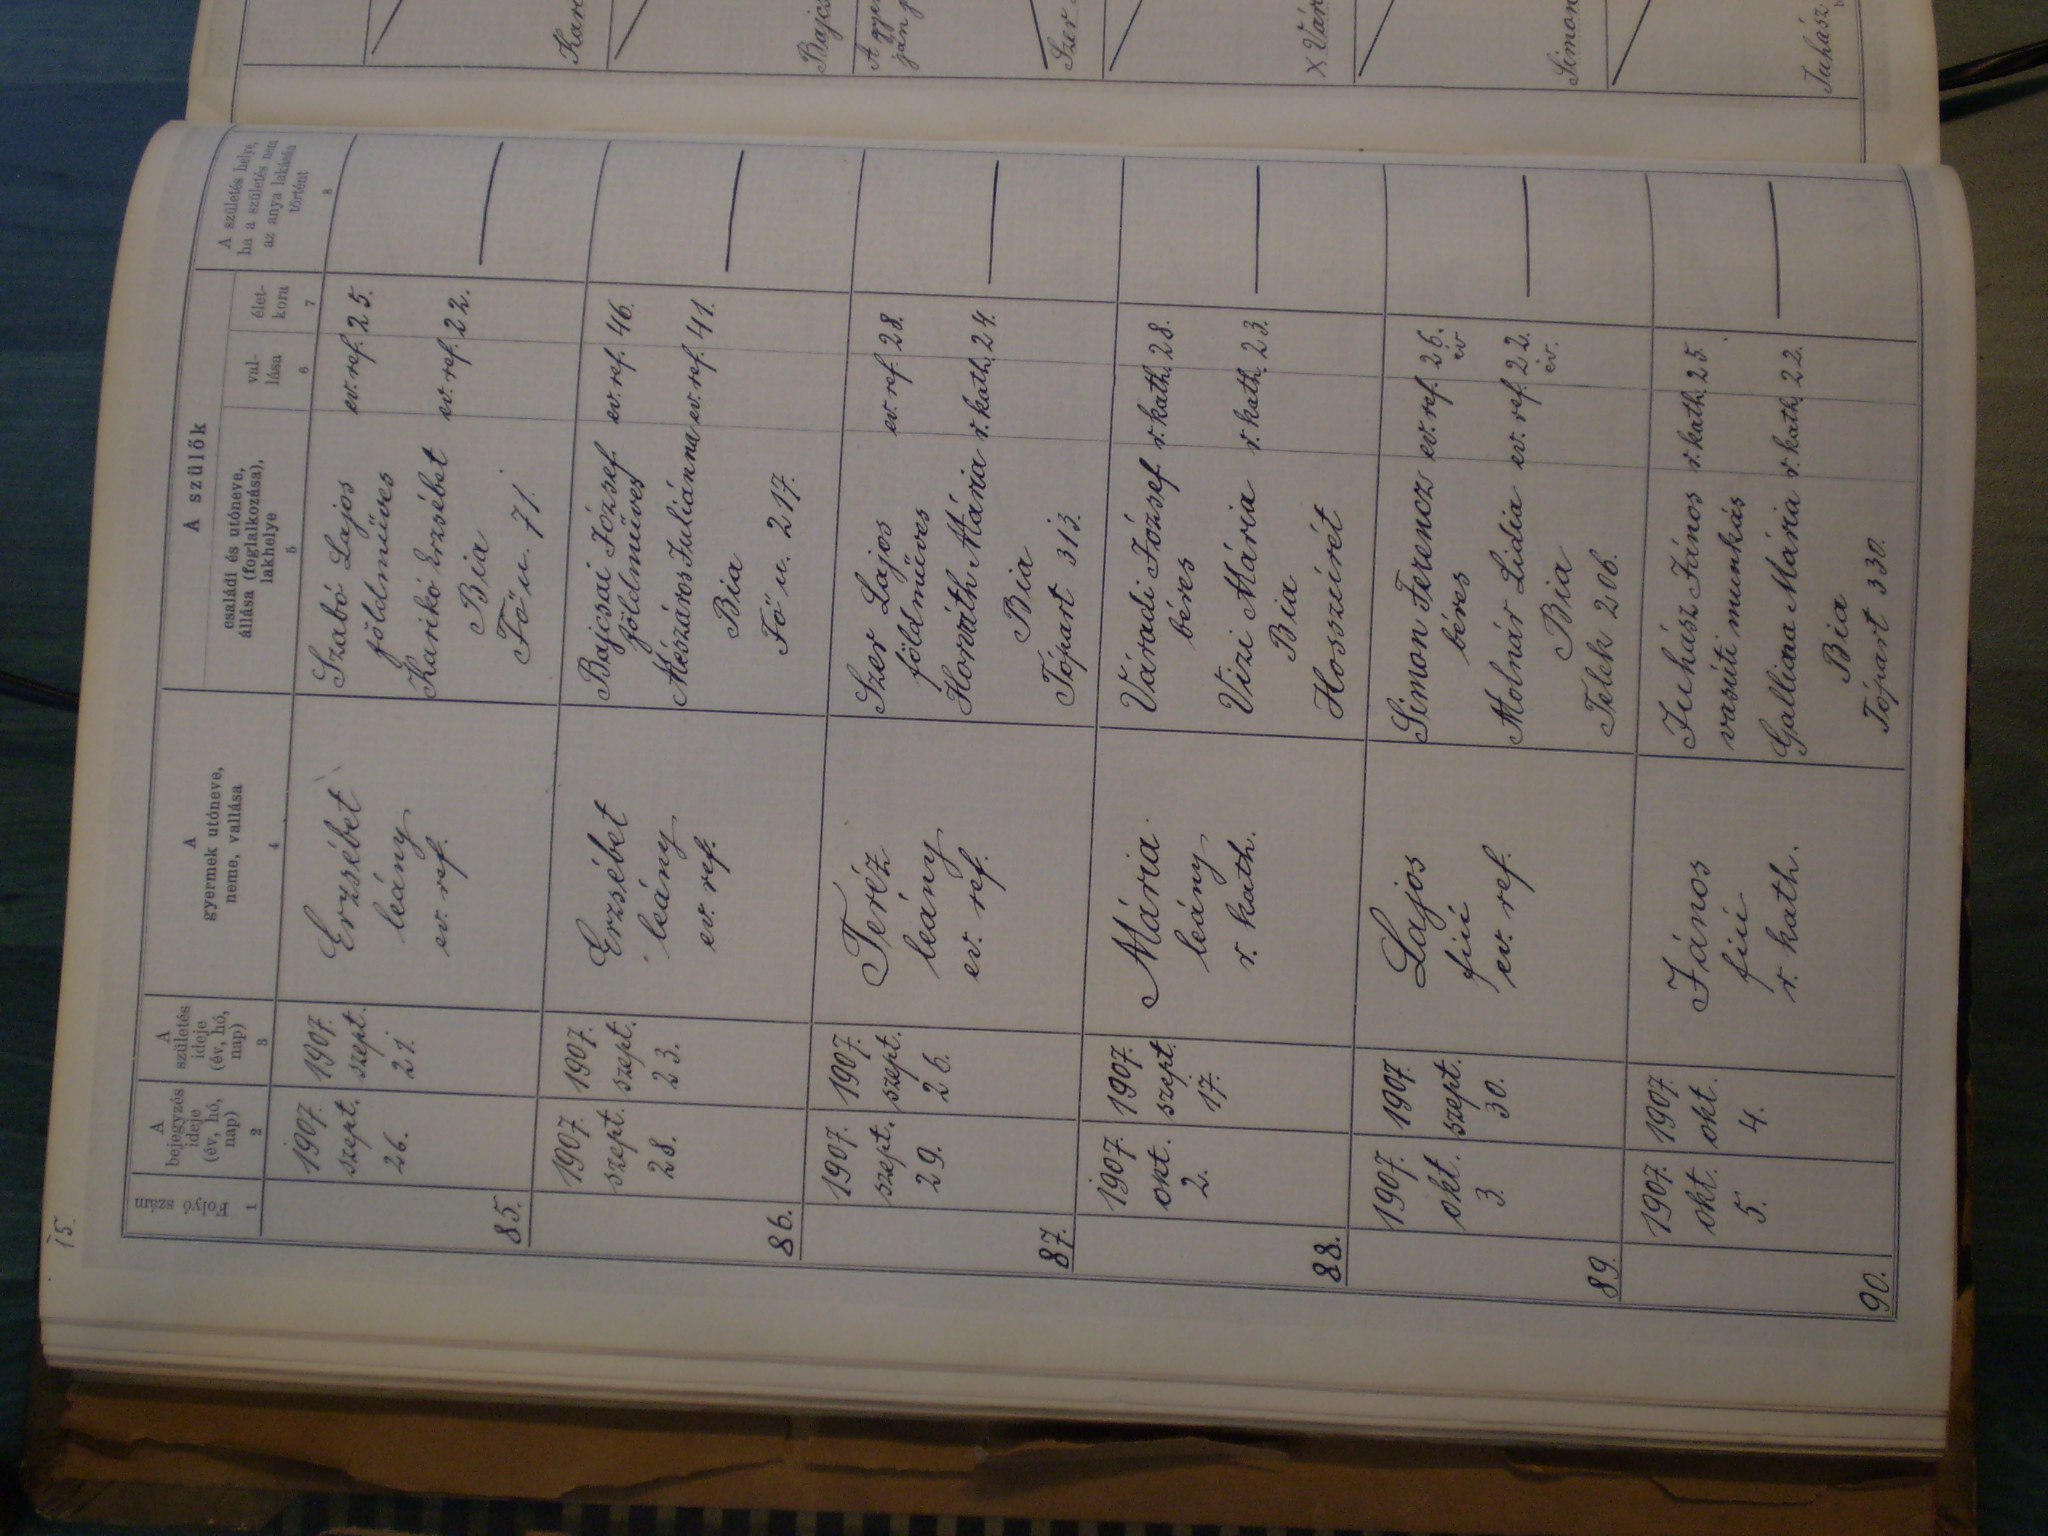 15.
Folyó szám
A
bejegyzés
ideje
(év, hó,
nap)
A
születés
ideje
(év, hó,
nap)
A
gyermek utóneve,
neme, vallása
A szülők
családi és utóneve,
állása (foglalkozása),
lakhelye
val-
lása
élet-
kora
A születés helye,
ha a születés nem
az anya lakásán
történt
1
2
3
4
5
6
7
8
85.
1907.
szept.
26.
1907.
szept.
21.
Erzsébet
leány
ev. ref.
Szabó Lajos
földműves
ev. ref. 25.
Karikó Erzsébet ev. ref. 22.
Bia
Fő u. 71.
86.
1907.
szept.
28.
1907.
szept.
23.
Erzsébet
leány
ev. ref.
Bajcsai József ev. ref. 46.
földműves
Mészáros Juliánna ev. ref. 41.
Bia
Fő u. 217.
87.
1907.
szept.
29.
1907.
szept.
26.
Teréz
leány
ev. ref.
Szer Lajos
földműves
ev. ref. 28.
Horváth Mária r. kath. 24.
Bia
Tópart 313.
88.
1907.
okt.
2.
1907.
szept.
17.
Mária
leány
r. kath.
Váradi József r. kath. 28.
béres
Vizi Mária r. kath. 23.
Bia
Hosszúrét
89.
1907.
okt.
3.
1907.
szept.
30.
Lajos
fiú
ev. ref.
Simon Ferencz ev. ref. 26.
év
béres
Molnár Lidia ev. ref. 22.
év.
Bia
Telek 206.
90.
1907.
okt.
5.
1907.
okt.
4.
János
fiú
r. kath.
Juhász János r. kath. 25.
vasúti munkás
Gallina Mária r. kath. 22.
Bia
Tópart 330.
Bajcs
Szer
x Vár
Simon
Juhász